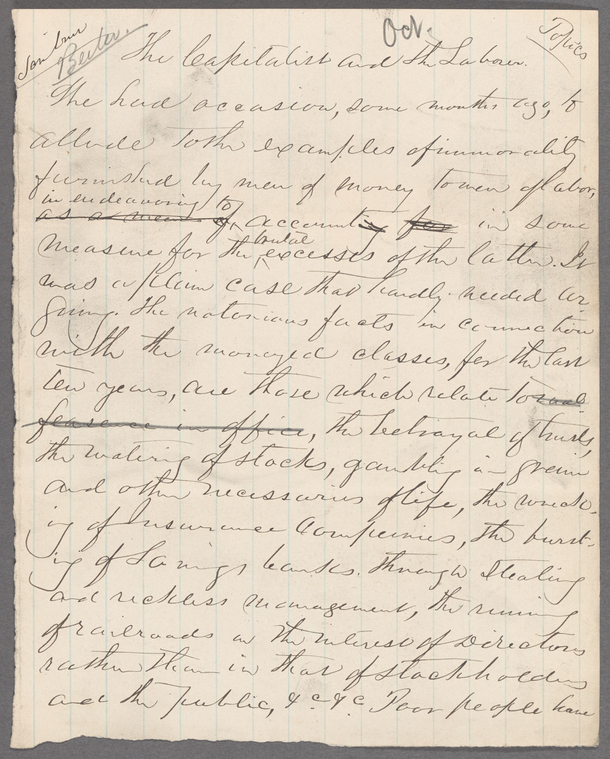 Oct.
Topics
The Capitalist and the Laborer.
We had occasion, some months ago, to
allude to the examples of immorality
furnished by men of money to men of labor,
in endeavoring to
as a means of accounting for in some
brutal
measure for the excesses of the latter. It
was a plain case that hardly needed ar-
guing. The notorious facts in connection
with the moneyed classes, for the last
ten years, are those which relate to
feasance in office, the betrayal of trusts,
the watering of stocks, gambling in grain
and other necessaries of life, the wreck-
ing of Insurance Companies, the burst-
ing of Savings banks through stealing
and reckless management, the running
of railroads in the interest of Directors
rather than in that of stockholders
and the public, &c. &c. Poor people have